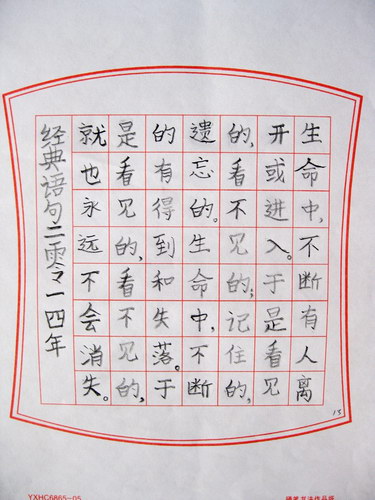 生命中,不断有人离
开或进入。于是看见
的,看不见的;记住的,
遗忘的。生命中,不断
的有得到和失落。于
是看见的,看不见的,
就也永远不会消失。
经典语句二零一四年
13
YXHC6865-05